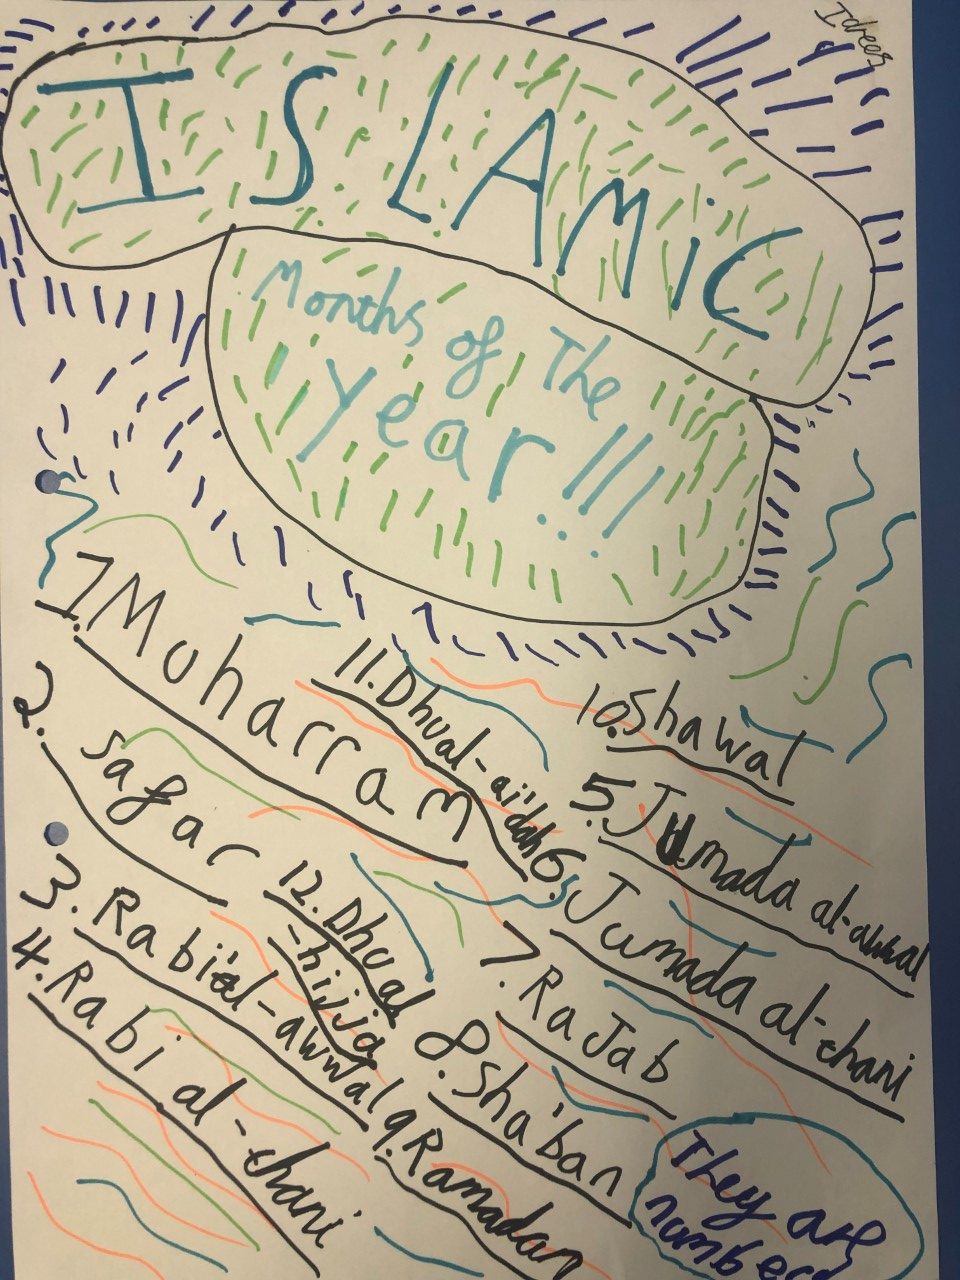 Idrees
ISLAMiC
Months of The
Year!!!
1. Muharram
2. Safar
3. Rabi'al-awwal
4. Rabi al-thani
11. Dhual-qi'dah
12. Dhual
-hijja
10. Shawal
5. Jumada al-awwal
6. Jumada al-thani
7. RaJab
8. Sha'ban
9. Ramadan
They are